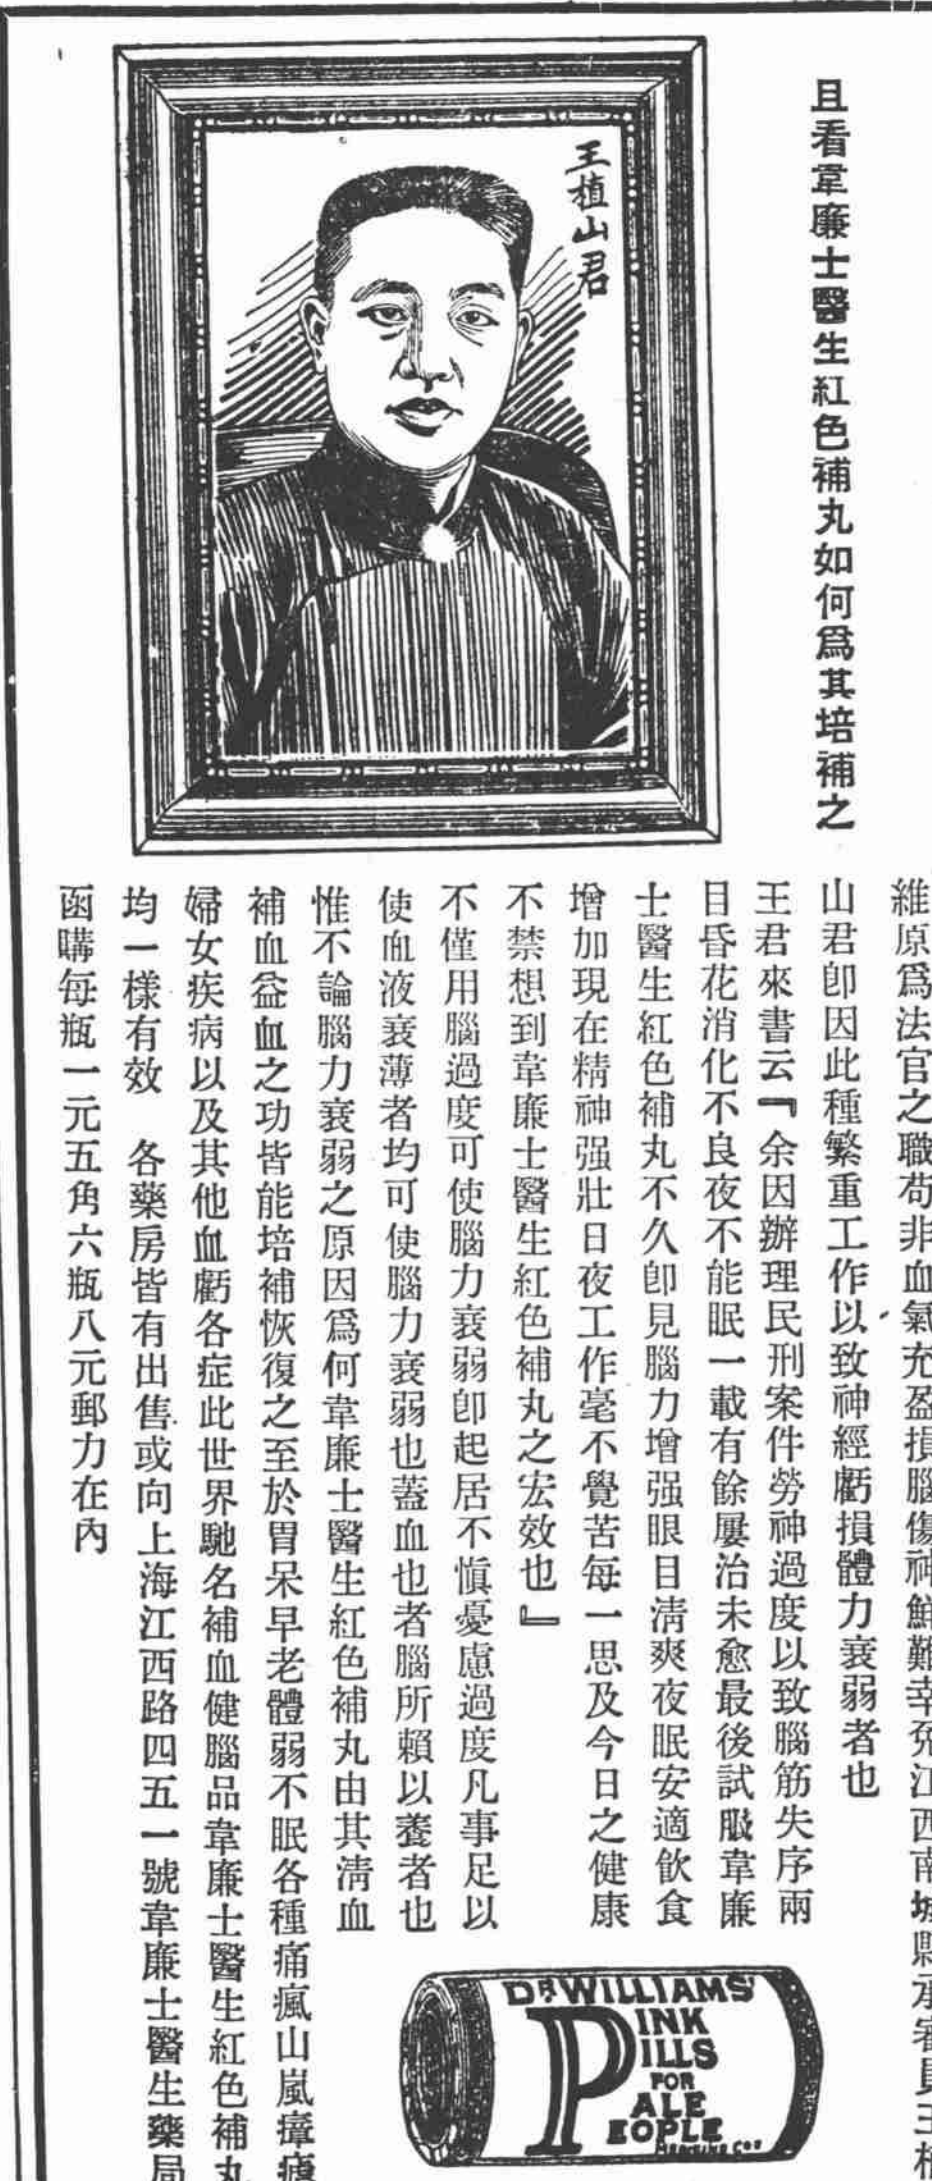 且看韋廉士醫生紅色補丸如何爲其培補之
王植山君
維原爲法官之職苟非血氣充盈損腦傷神鮮難幸免江西南城縣承審員王植
山君卽因此種繁重工作以致神經虧損體力衰弱者也
王君來書云『余因辦理民刑案件勞神過度以致腦筋失序兩
目昏花消化不良夜不能眠一載有餘屢治未愈最後試服韋廉
士醫生紅色補丸不久卽見腦力增强眼目清爽夜眠安適飲食
增加現在精神强壯日夜工作毫不覺苦每一思及今日之健康
不禁想到韋廉士醫生紅色補丸之宏效也』
不僅用腦過度可使腦力衰弱卽起居不愼憂慮過度凡事足以
使血液衰薄者均可使腦力衰弱也蓋血也者腦所賴以養者也
惟不論腦力衰弱之原因爲何韋廉士醫生紅色補丸由其淸血
補血益血之功皆能培補恢復之至於胃呆早老體弱不眠各種痛瘋山嵐瘴
婦女疾病以及其他血虧各症此世界馳名補血健腦品韋廉士醫生紅色補丸
均一樣有效 各藥房皆有出售或向上海江西路四五一號韋廉士醫生藥局
函購每瓶一元五角六瓶八元郵力在內
DR WILLIAMS'
PINK
PILLS
FOR
PALE
PEOPLE